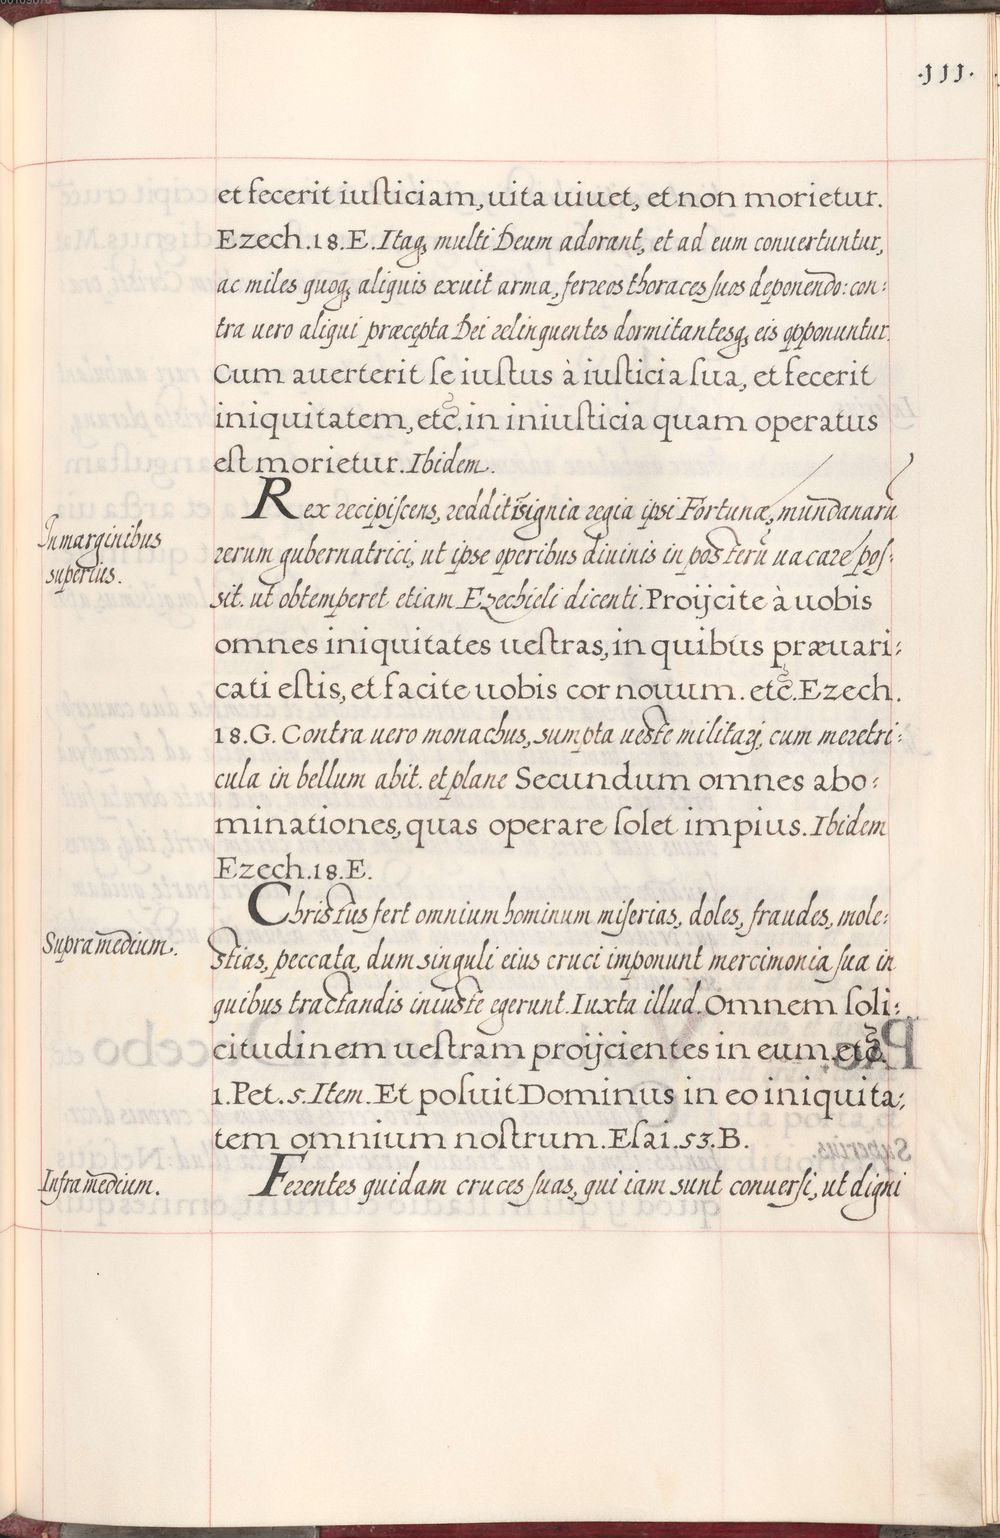 .111.
et fecerit iusticiam, uita uiuet, et non morietur.
Ezech.18.E. Itaq; multi Deum adorant, et ad eum conuertuntur,
ac miles quoq; aliquis exuit arma, ferreos thoraces suos deponendo: con:
tra uero aliqui præcepta Dei relinquentes dormitantesq; eis opponuntur.
Cum auerterit se iustus à iusticia sua, et fecerit
iniquitatem, etc̃. in iniusticia quam operatus
est morietur. Ibidem.
Rex recipiscens, reddit ĩsignia regia ipsi Fortunæ, mundanarũ
In marginibus superius.
rerum gubernatrici, ut ipse operibus diuinis in posterũ uacare pos:
sit. ut obtemperet etiam Ezechieli dicenti. Proijcite à uobis
omnes iniquitates uestras, in quibus præuari:
cati estis, et facite uobis cor nouum. etc̃. Ezech.
18.G. Contra uero monachus, sumpta ueste militarj, cum meretri:
cula in bellum abit. et plane Secundum omnes abo:
minationes, quas operare solet impius. Ibidem
Ezech.18.E.
Christus fert omnium hominum miserias, doles, fraudes, mole:
Supra medium.
stias, peccata, dum singuli eius cruci imponunt mercimonia sua in
quibus tractandis iniuste egerunt. Iuxta illud. Omnem soli:
citudinem uestram proijcientes in eum etc̃.
1.Pet.5. Item. Et posuit Dominus in eo iniquita:
tem omnium nostrum. Esai.53.B.
Infra medium.
Ferentes quidam cruces suas, qui iam sunt conuersi, ut digni